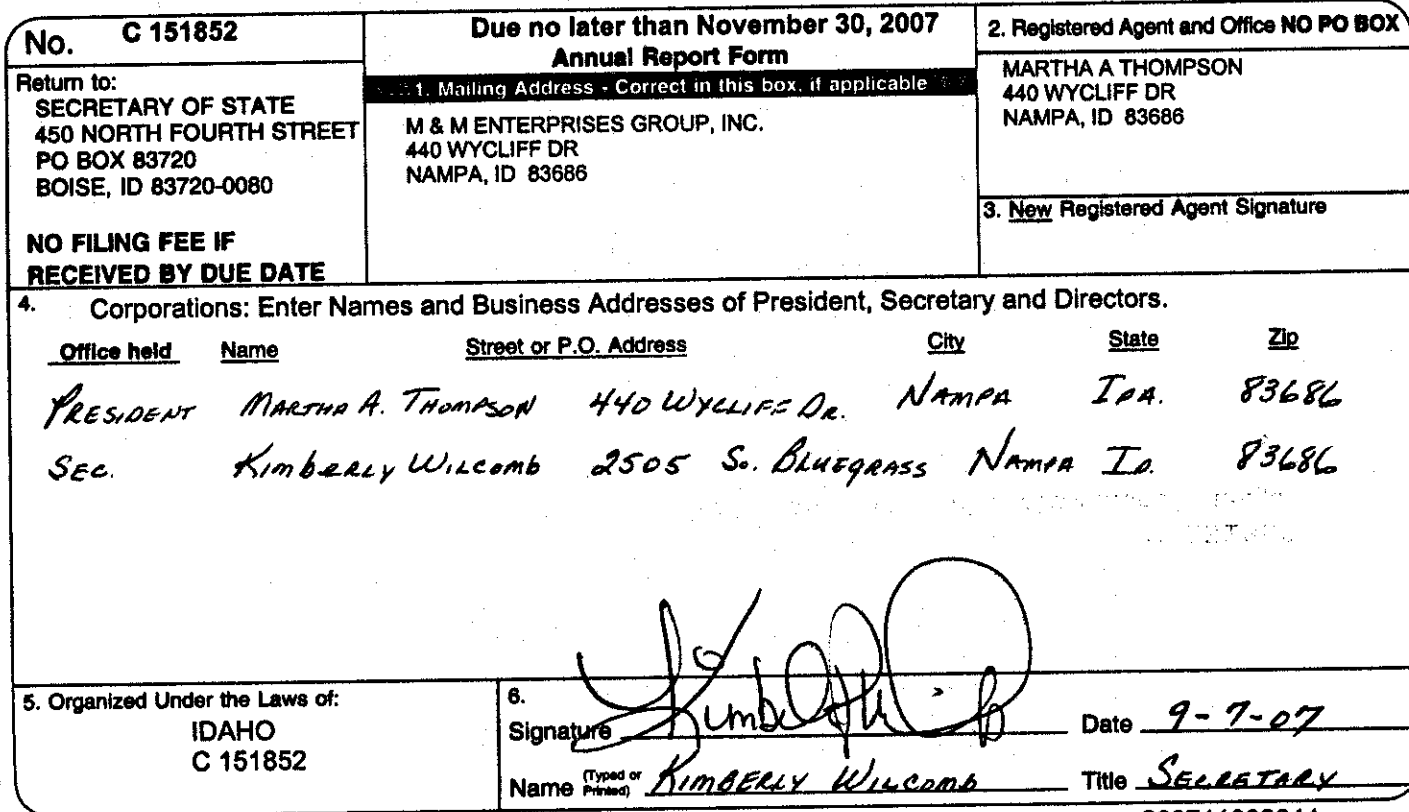 No. C 151852
Return to:
SECRETARY OF STATE
450 NORTH FOURTH STREET
PO BOX 83720
BOISE, ID 83720-0080
NO FILING FEE IF
RECEIVED BY DUE DATE
Due no later than November 30, 2007
Annual Report Form
1. Mailing Address - Correct in this box, if applicable
M & M ENTERPRISES GROUP, INC.
440 WYCLIFF DR
NAMPA, ID 83686
2. Registered Agent and Office NO PO BOX
MARTHA A THOMPSON
440 WYCLIFF DR
NAMPA, ID 83686
3. New Registered Agent Signature
4. Corporations: Enter Names and Business Addresses of President, Secretary and Directors.
Office held Name Street or P.O. Address City State Zip
PRESIDENT MARTHA A. THOMPSON 440 WYCLIFF DR. NAMPA IDA. 83686
SEC. KIMBERLY WILCOMB 2505 So. BLUEGRASS NAMPA ID. 83686
5. Organized Under the Laws of:
IDAHO
C 151852
6.
Signature Date 9-7-07
Name (Typed or Printed) KIMBERLY WILCOMB Title SECRETARY